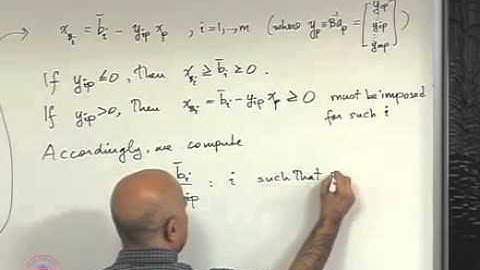 → x_{B_i} = b̄_i - y_{ip} x_p , i=1,...,m (where y_p = B⁻¹a_p = [y_{1p} ⋮ y_{ip} ⋮ y_{mp}])
If y_{ip} ≤ 0, Then x_{B_i} ≥ b̄_i ≥ 0.
If y_{ip} > 0, Then x_{B_i} = b̄_i - y_{ip} x_p ≥ 0 must be imposed
for such i
Accordingly, we compute
b̄_i / y_{ip} : i such that